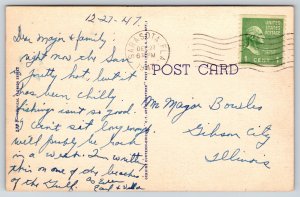 12-27-47.
Dear Major & family
right now the Sun
is pretty hot, but it
has been chilly
fishing isn't so good.
I can't set long enough
we'll probly be back
in a week. I'm writing
this on one of the beaches
of the Gulf. As Ever
Earl &
SARASOTA FLA
DEC
UNITED STATES
POSTAGE
1 CENT 1
POST CARD
Mr Major Bowles
Gibson City
Illinois